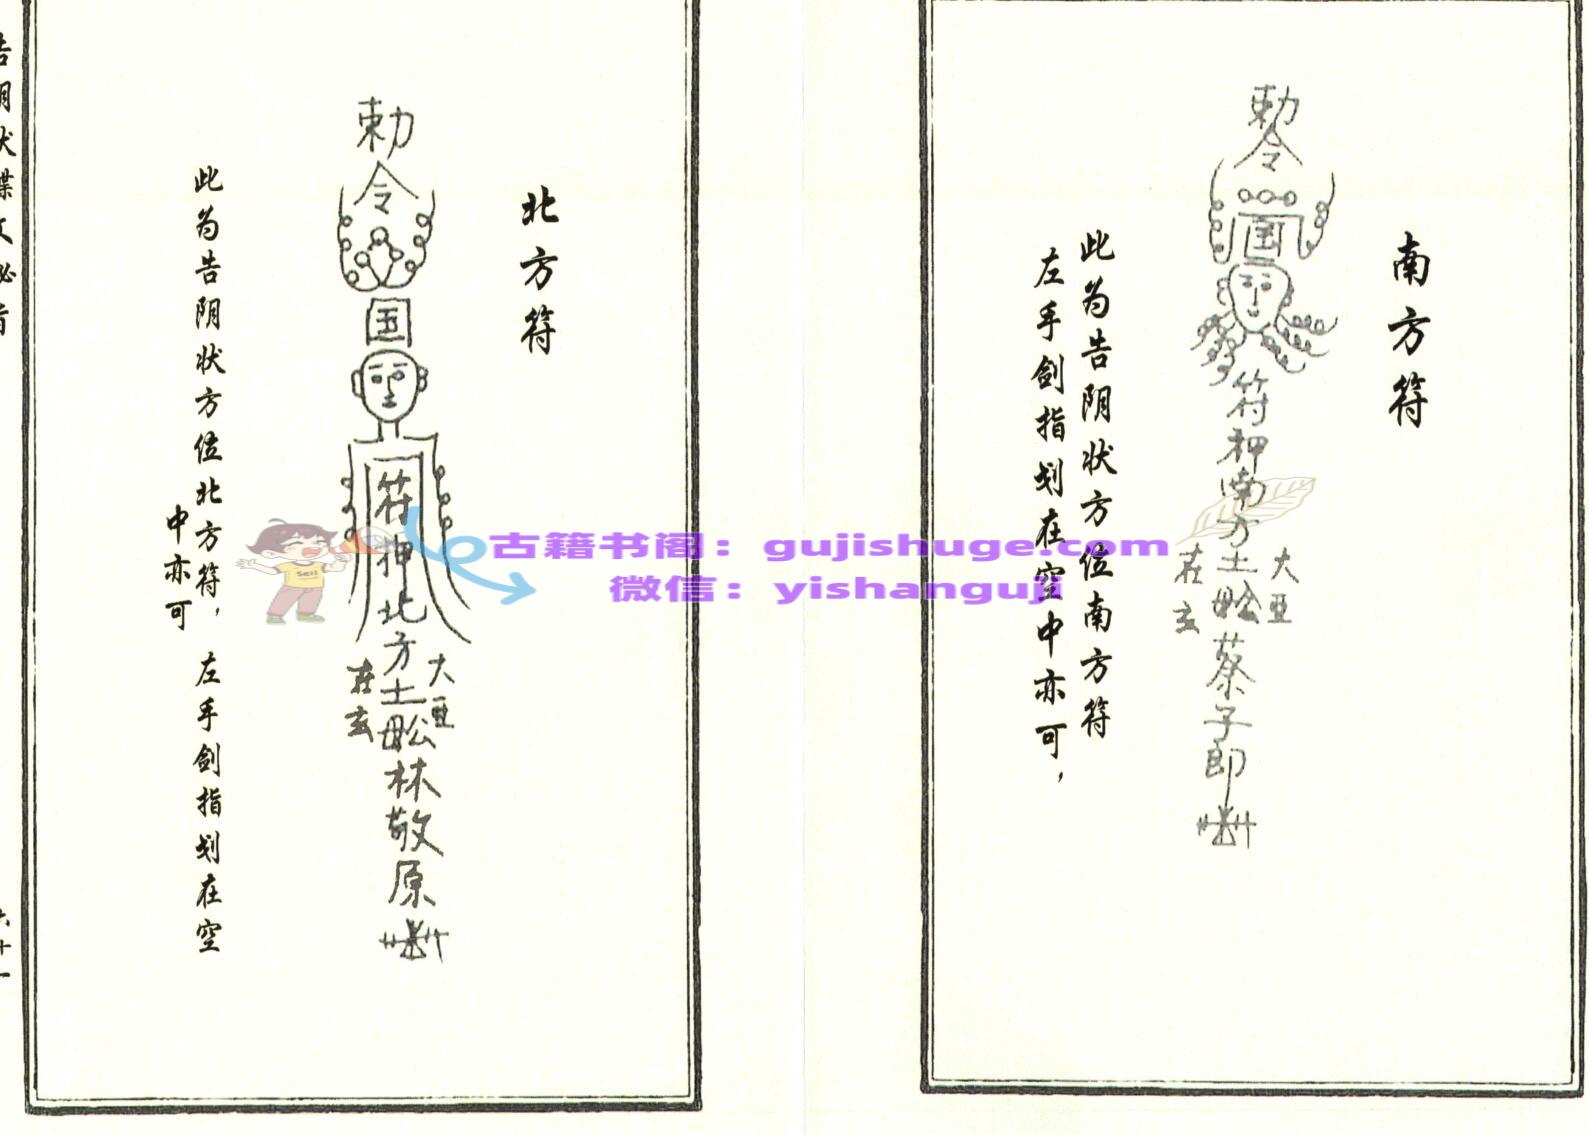 南方符
此为告阴状方位南方符
左手剑指划在空中亦可，
勅令
国
符押南方土
大亚
在玄
蔡子郎
北方符
勅令
国
符押北方土
大亚
在玄
林敬原
此为告阴状方位北方符，左手剑指划在空
中亦可
告阴状牒文秘旨
六十一
古籍书阁：gujishuge.com
微信：yishanguji